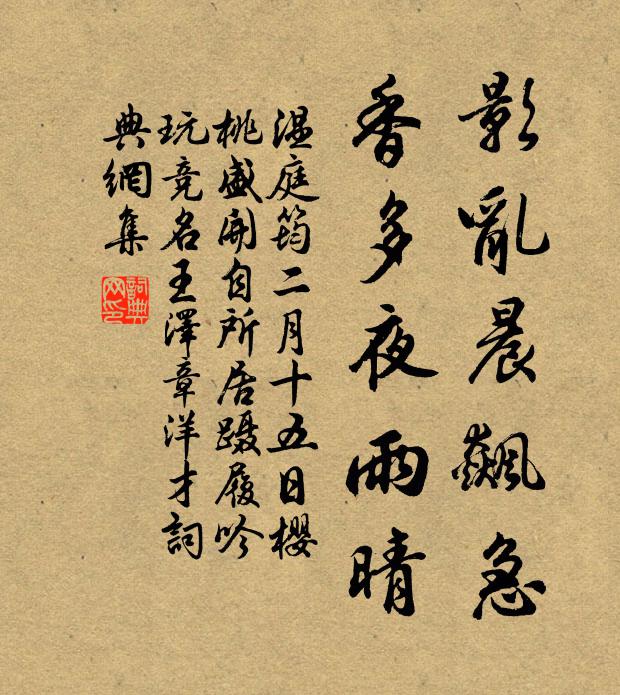 影亂晨飆急
香多夜雨晴
溫庭筠二月十五日櫻
桃盛開自所居躡履吟
玩競名王澤章洋才詞
典網集
詞典
網印